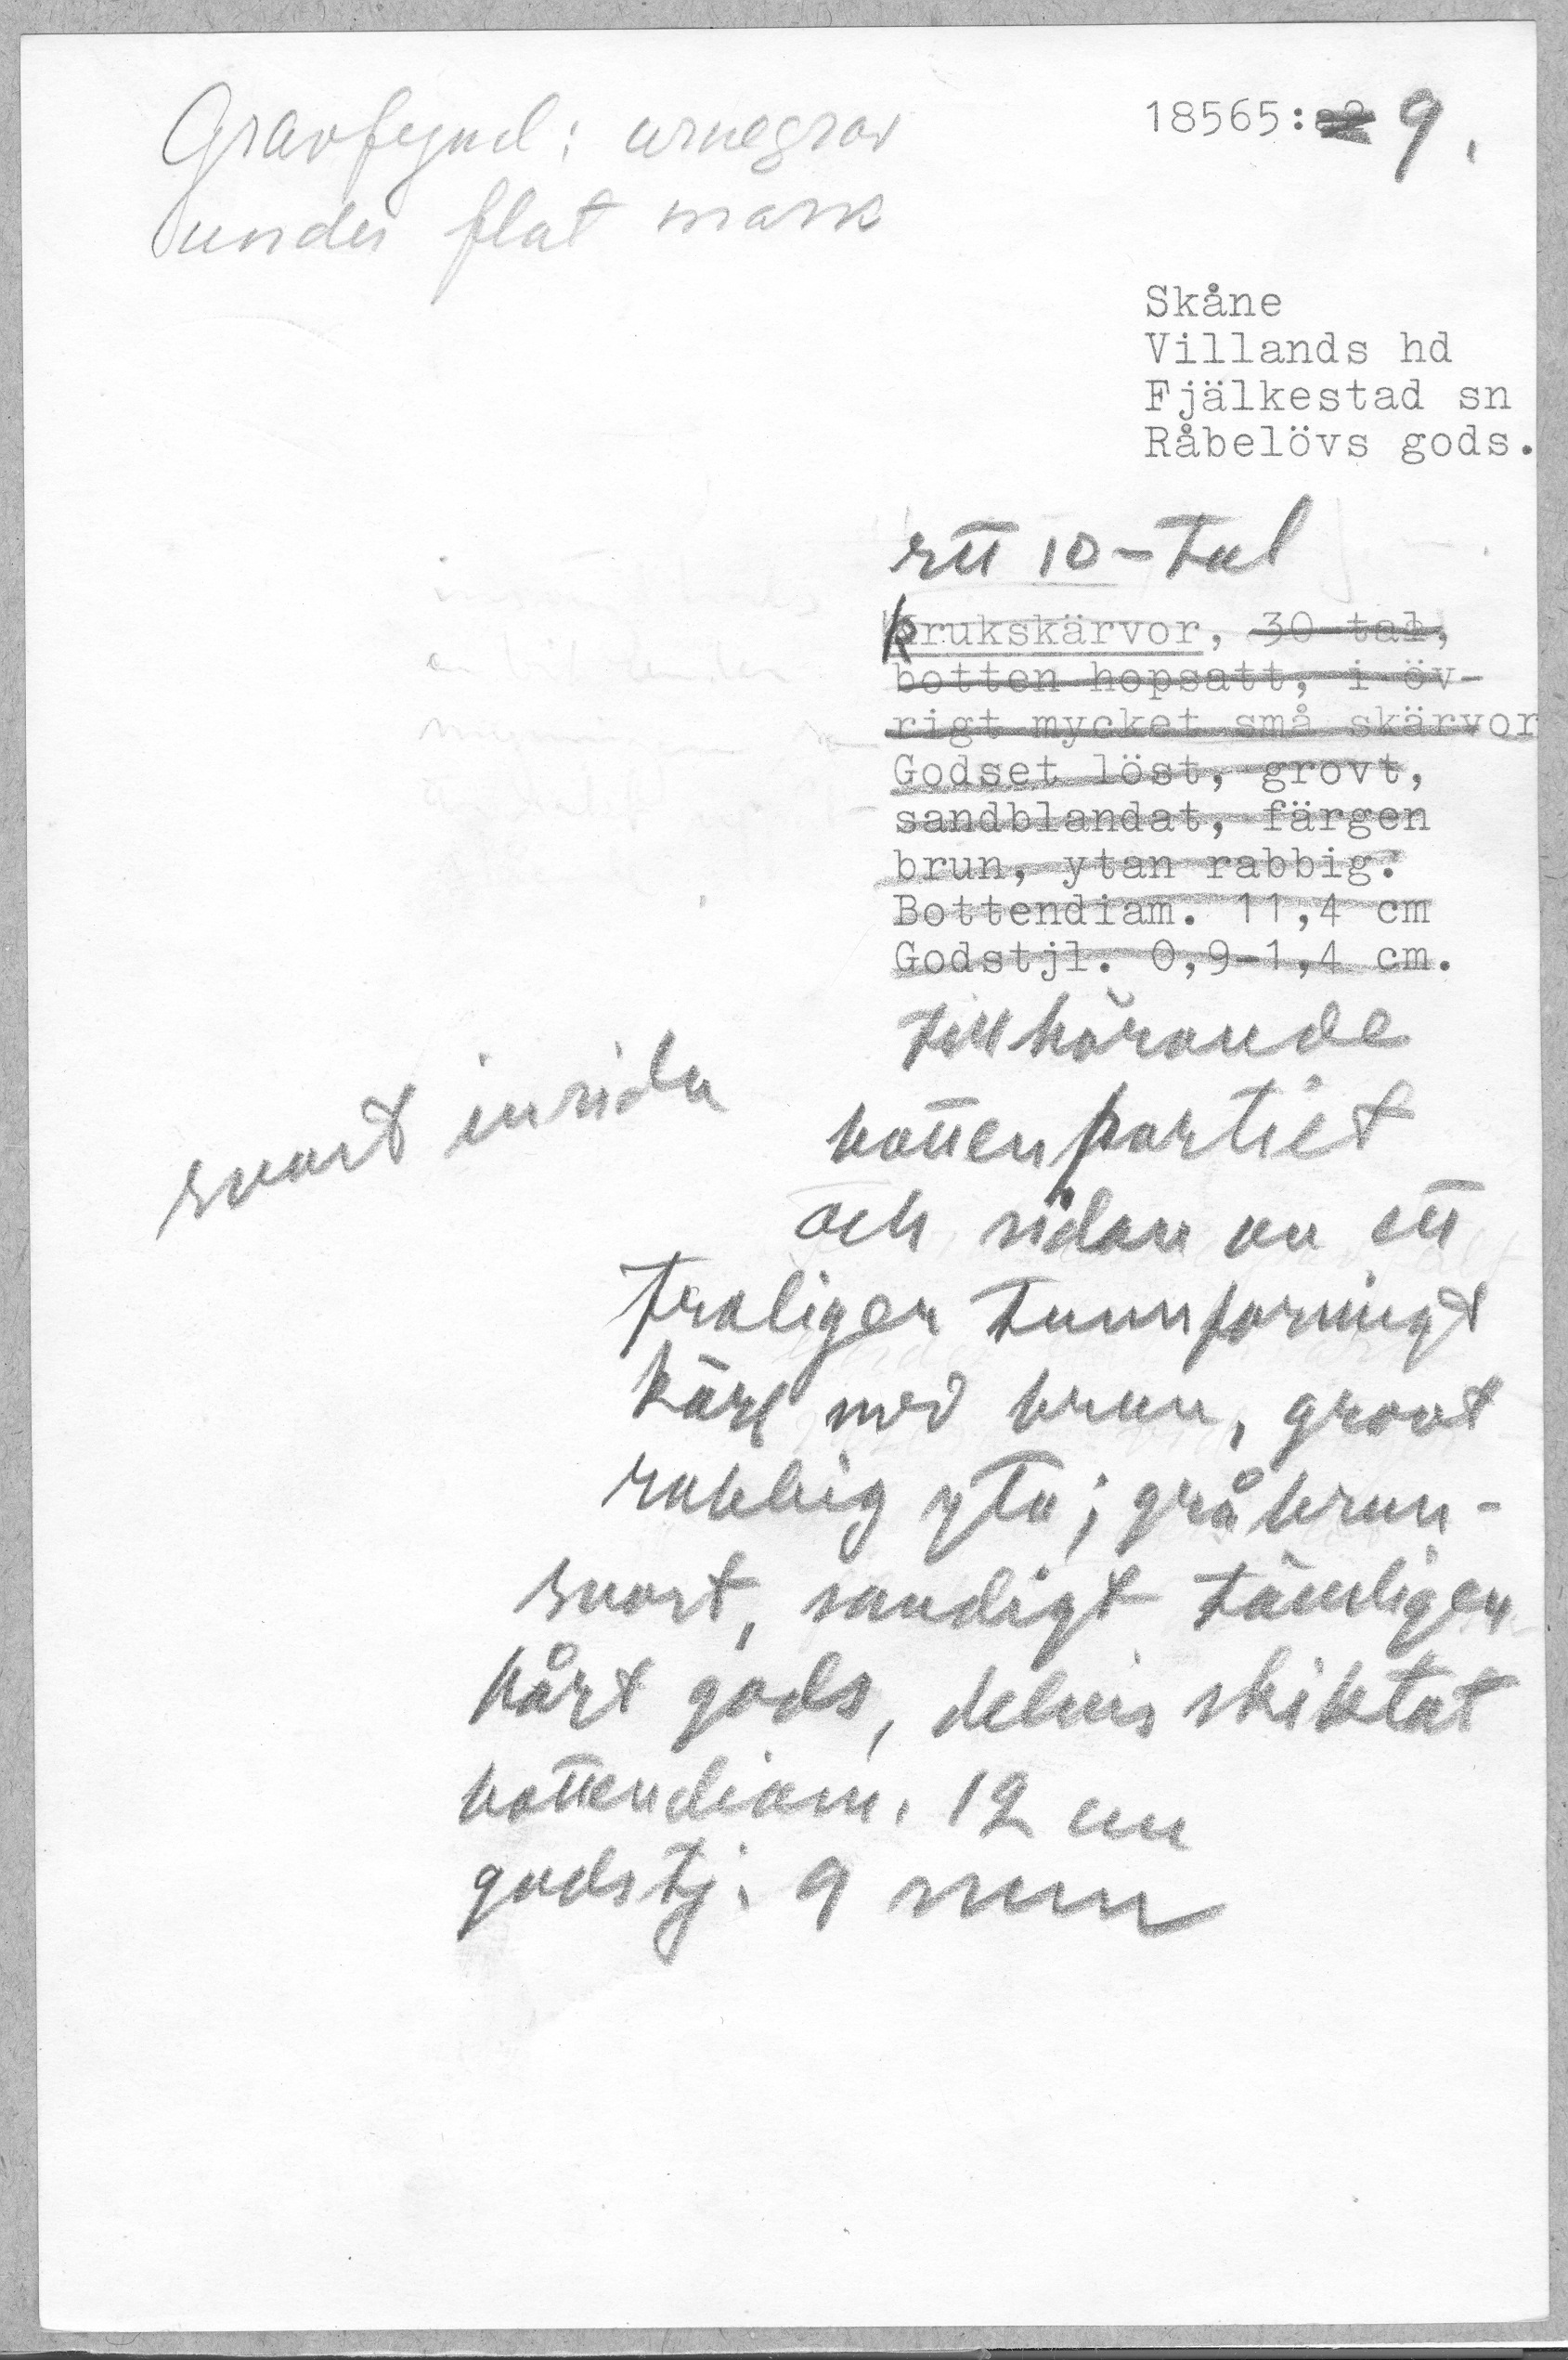 Gravfynd: urnegrav
under flat mark
18565: 9.
Skåne
Villands hd
Fjälkestad sn
Råbelövs gods.
ett 10-tal
krukskärvor, 30 tal,
botten hopsatt, i öv-
rigt mycket små skärvor
Godset löst, grovt,
sandblandat, färgen
brun, ytan rabbig.
Bottendiam. 11,4 cm
Godstjl. 0,9-1,4 cm.
tillhörande
svart insida
bottenpartiet
och sidan av ett
troligen tunnformigt
kärl med brun, grovt
rabbig yta; gråbrun-
svart, sandigt tämligen
hårt gods, delvis skiktat
bottendiam. 12 cm
godstj. 9 mm